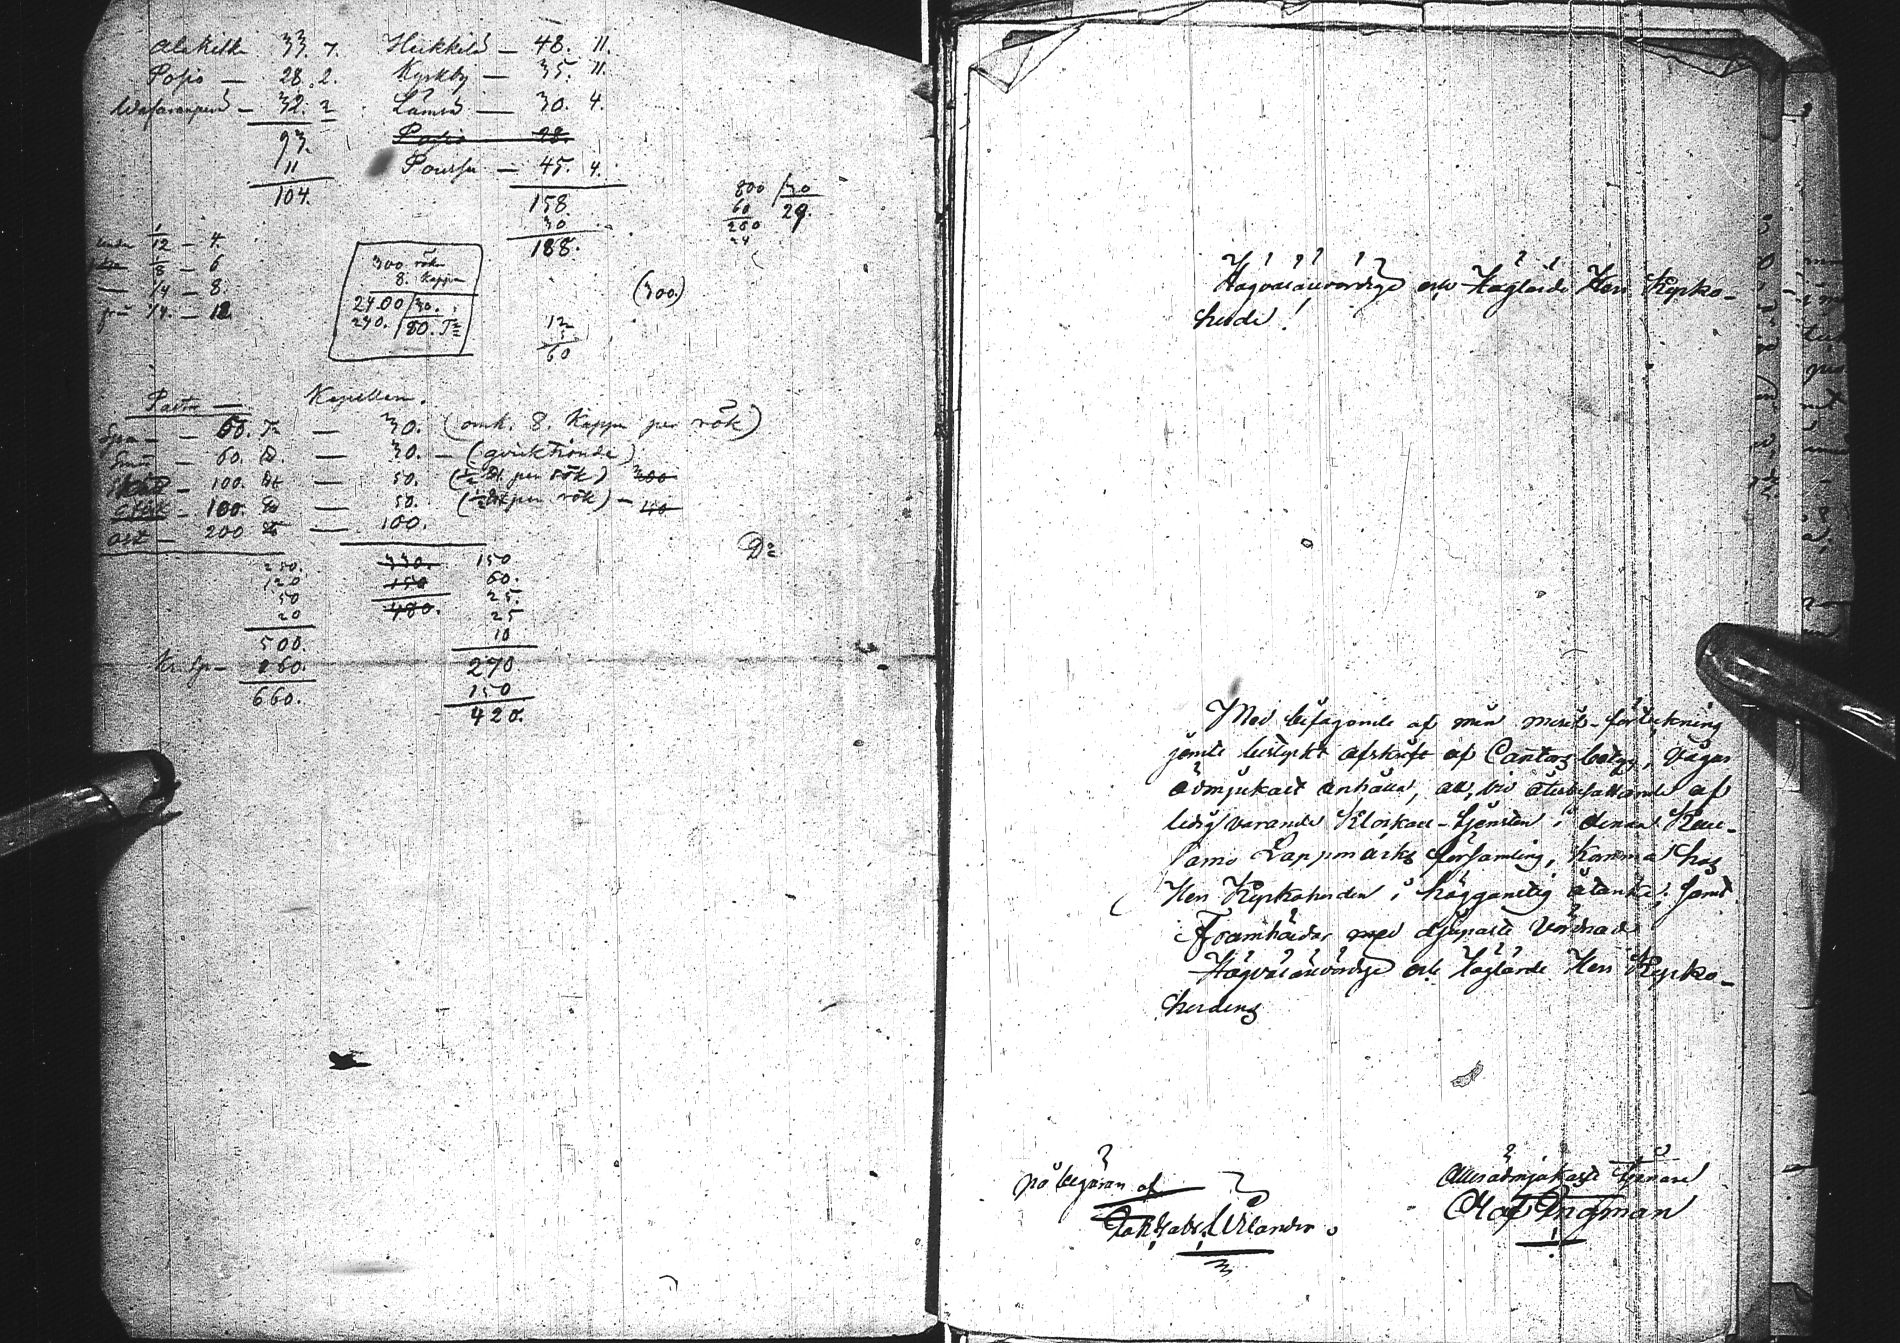 Alakitka 33. 7. Heikkilä — 48. 11.
Posio — 28. 2. Kyrkby — 35. 11.
— 32. 2 Lämsä — 30. 4.
93. Posio 28.
11 Poussu — 45. 4.
104. 158.
30
188.
800 /30
60 29.
200
24
under 1/12 — 4.
1/8 — 6
— 1/4 — 8.
1/4. — 12
300 rök
8. Kappar
2400 /30.
240. /80. Tr
(300.)
12
60
Pastor — Kapellan.
60. Tr — 30. (omk. 8. Kappar per rök)
Smör — 60. — 30. — (qvicktionde)
— 100. — 50. (1/2 per rök) 300
— 100. — 50. (1/2 per rök) — 40
Ost — 200 — 100.
250. 330. 150
120 150 60.
50 480. 25.
20 25
500. 10
160. 270
660. 150
420.
Högvälärevördige och Höglärde Herr Kyrko-
herde!
Med bifogande af min merit-förteckning
jämte bestyrkt afskrift af Cantors betyg, vågar
ödmjukast anhålla, att, vid återbesättande af
ledig varande Klockare-tjensten i denna Kuu-
samo Lappmarks församling, komma hos
Herr Kyrkoherden i höggunstig åtanke; samt
Framhärdar med djupaste Vördnad
Högvälärevördige och Höglärde Herr Kyrko-
herdens
på begäran af Allerödmjukaste tjenare
Olof Ingman